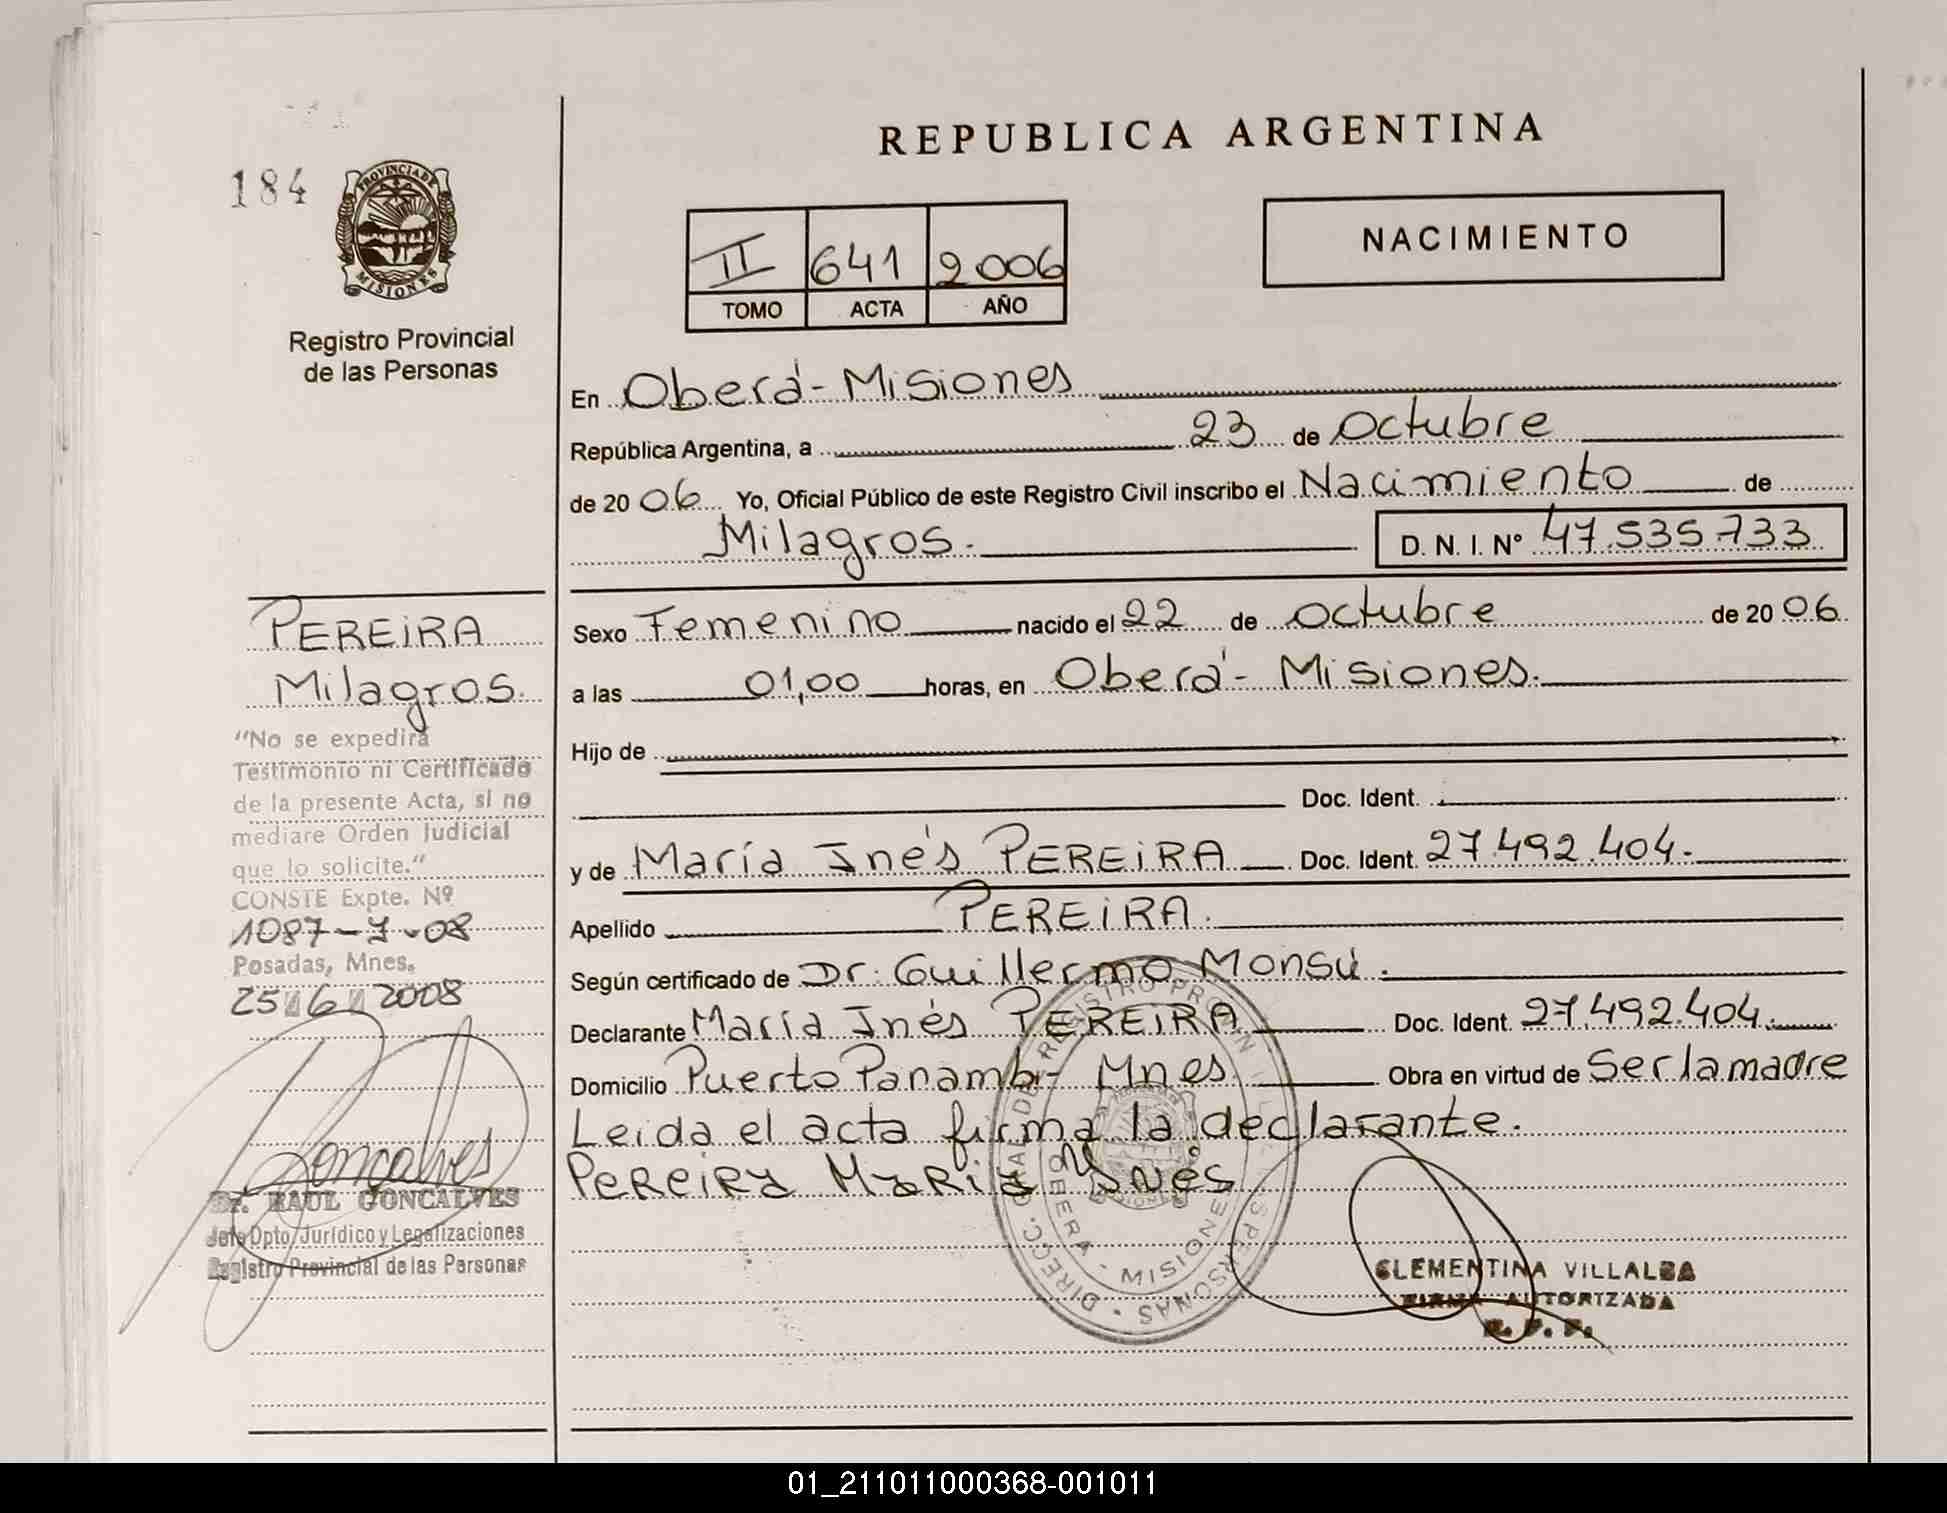 REPUBLICA ARGENTINA
184
PROVINCIA DE
MISIONES
Registro Provincial
de las Personas
II 641 2006
TOMO ACTA AÑO
NACIMIENTO
En Oberá - Misiones
República Argentina, a 23 de Octubre
de 2006 Yo, Oficial Público de este Registro Civil inscribo el Nacimiento de
Milagros. D. N. I. Nº 47.535.733
Sexo Femenino nacido el 22 de octubre de 2006
a las 01,00 horas, en Oberá - Misiones.
Hijo de
Doc. Ident.
y de María Inés PEREIRA Doc. Ident. 27.492.404.
Apellido PEREIRA.
Según certificado de Dr. Guillermo Monsú.
Declarante María Inés PEREIRA Doc. Ident. 27.492.404.
Domicilio Puerto Panambí - Mnes. Obra en virtud de Ser la madre
Leida el acta firma la declarante.
PEREIRA MARIA YNÉS
DIRECC. GRAL. DE REGISTRO PROVINCIAL DE LAS PERSONAS
OBERA - MISIONES
CLEMENTINA VILLALBA
FIRMA AUTORIZADA
R. P. P.
PEREIRA
Milagros.
"No se expedirá
Testimonio ni Certificado
de la presente Acta, si no
mediare Orden Judicial
que lo solicite."
CONSTE Expte. Nº
1087-7-08
Posadas, Mnes.
25 6 2008
Goncalves
Dr. RAUL GONCALVES
Jefe Dpto Jurídico y Legalizaciones
Registro Provincial de las Personas
01_211011000368-001011